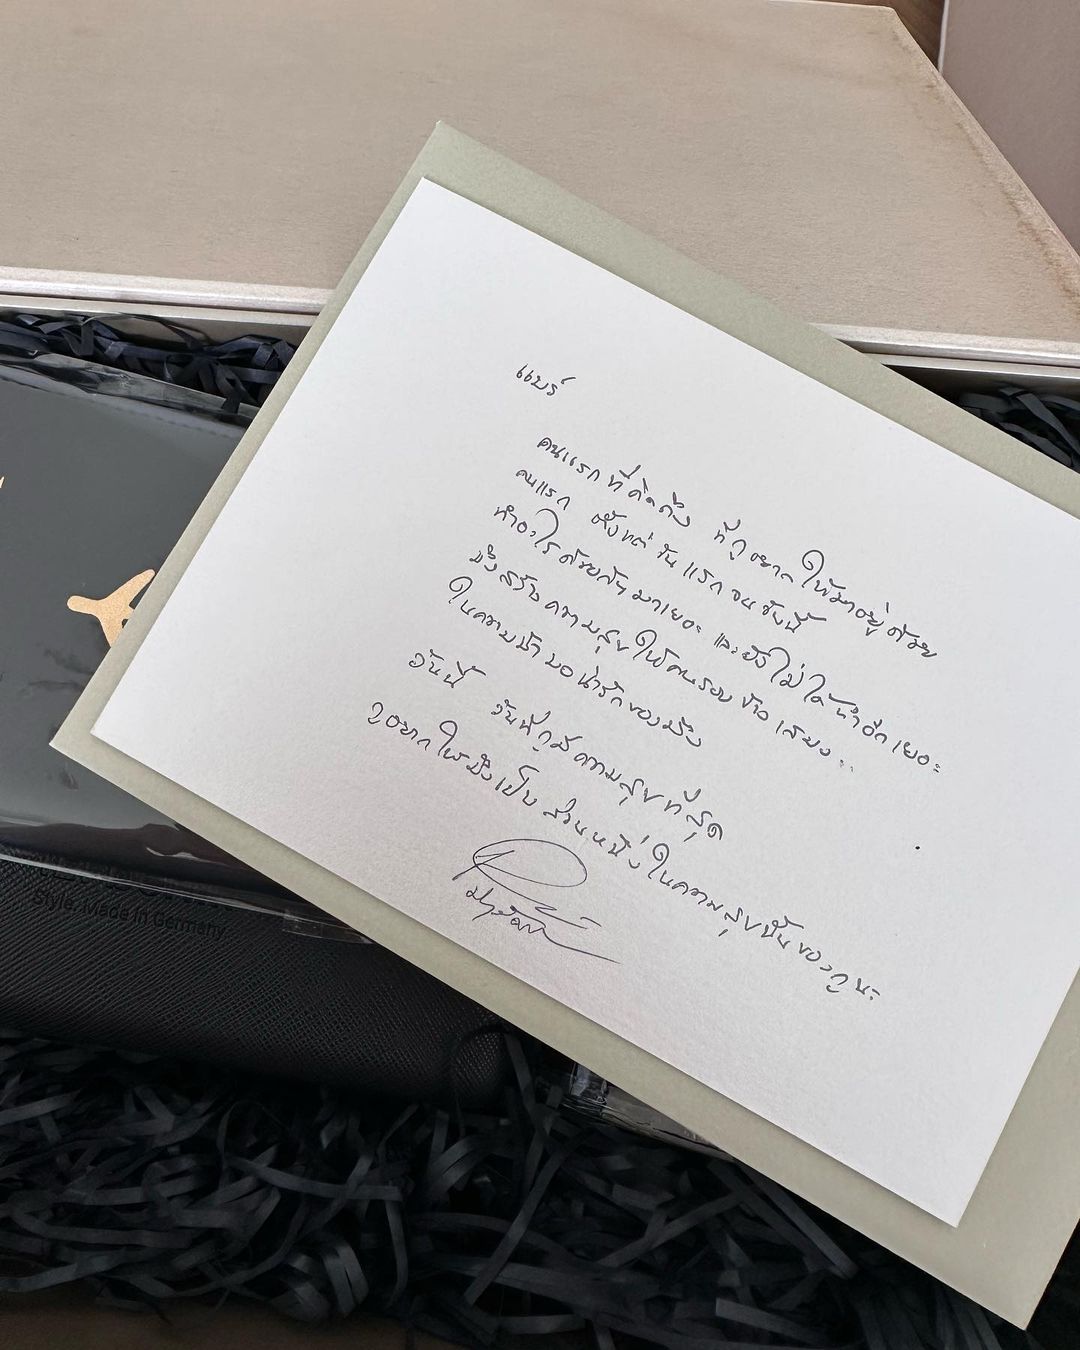 แบร์
คนแรก ที่คิดถึง ที่กูอยากให้มาอยู่ด้วย
คนแรก ตั้งแต่วันแรก จนวันนี้
ทำอะไรด้วยกันมาเยอะ และยังไม่ได้ทำอีกเยอะ
มึงสร้างความสุขให้คนรอบข้างเสมอ..
ในความน่ารักของมึง
วันนี้ วันที่กูมีความสุขที่สุด
อยากให้มึงเป็นส่วนหนึ่งในความสุขนั้นของกูนะ
Style Made in Germany